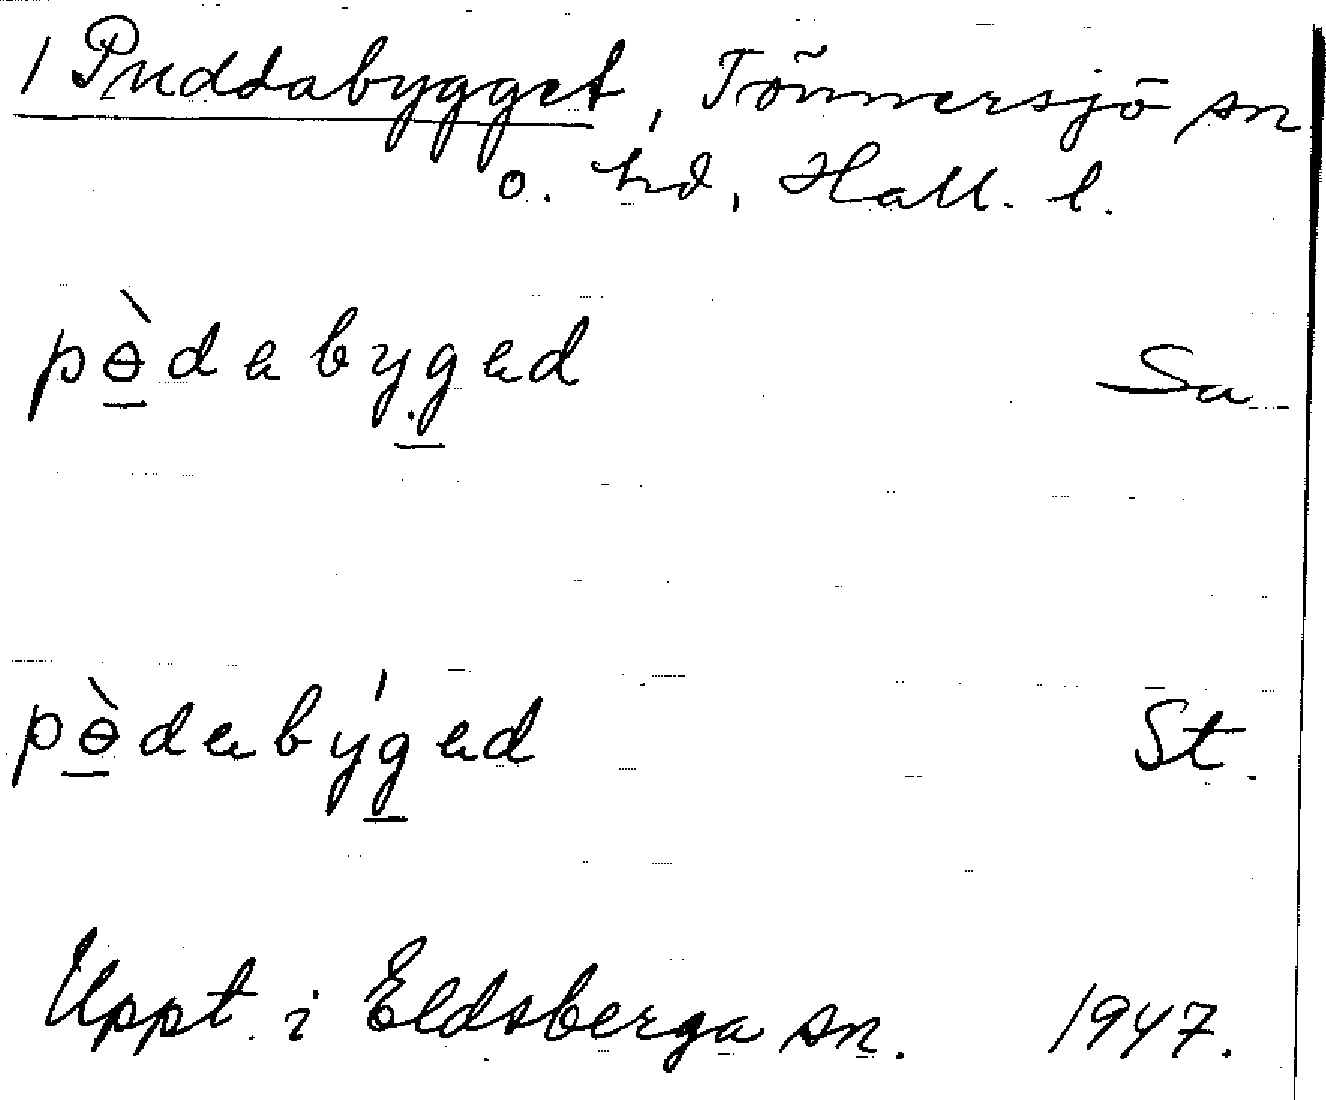 1 Puddabygget, Tönnersjö sn
o. hd, Hall. l.
pɵ̀dabyged Sa
pɵ̀dabýged St.
Uppt. i Eldsberga sn. 1947.